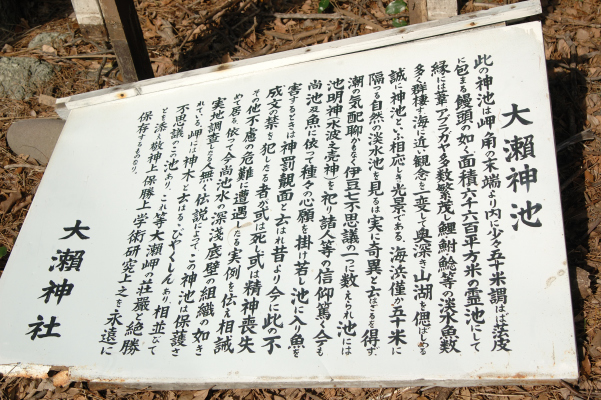 大瀬神池
此の神池は岬角の末端より内に少々五十米謂はば茂
に包まる饅頭の如く面積六千六百平方米の霊池にして
縁には葦アフラガヤ多数繁茂し鯉鮒鯰等の淡水魚数
多く群棲し海に近く観念を一変して奥深き山湖を偲ばしめる
誠に神池といふ相応しき光景である。海浜僅か五十米に
隔る自然の淡水池を見るは実に奇異と云はざるを得ず、
潮の気配聊かもなく伊豆七不思議の一つに数えられ池には
池明神水波之売神を祀り諸人等の信仰篤く今も
尚池及魚に依って種々の心願を掛け若し池に入り魚を
害するときは神罰覿面と云はれ昔より今に此の不
成文禁を犯したる者が或は死し或は精神喪失
その他不慮の危難に遭遇したる実例を伝え相誡
めて居る依って今尚池水の深浅底壁の組織の如き
実地調査したことなく無く伝説によってこの神池は保護さ
れている。岬には神木と云はるびやくしんあり相並びて
不思議のこの池あり、これ等大瀬岬の荘厳と絶勝
とを添え敬神上保勝上学術研究上之を永遠に
保存するものなり。
大瀬神社